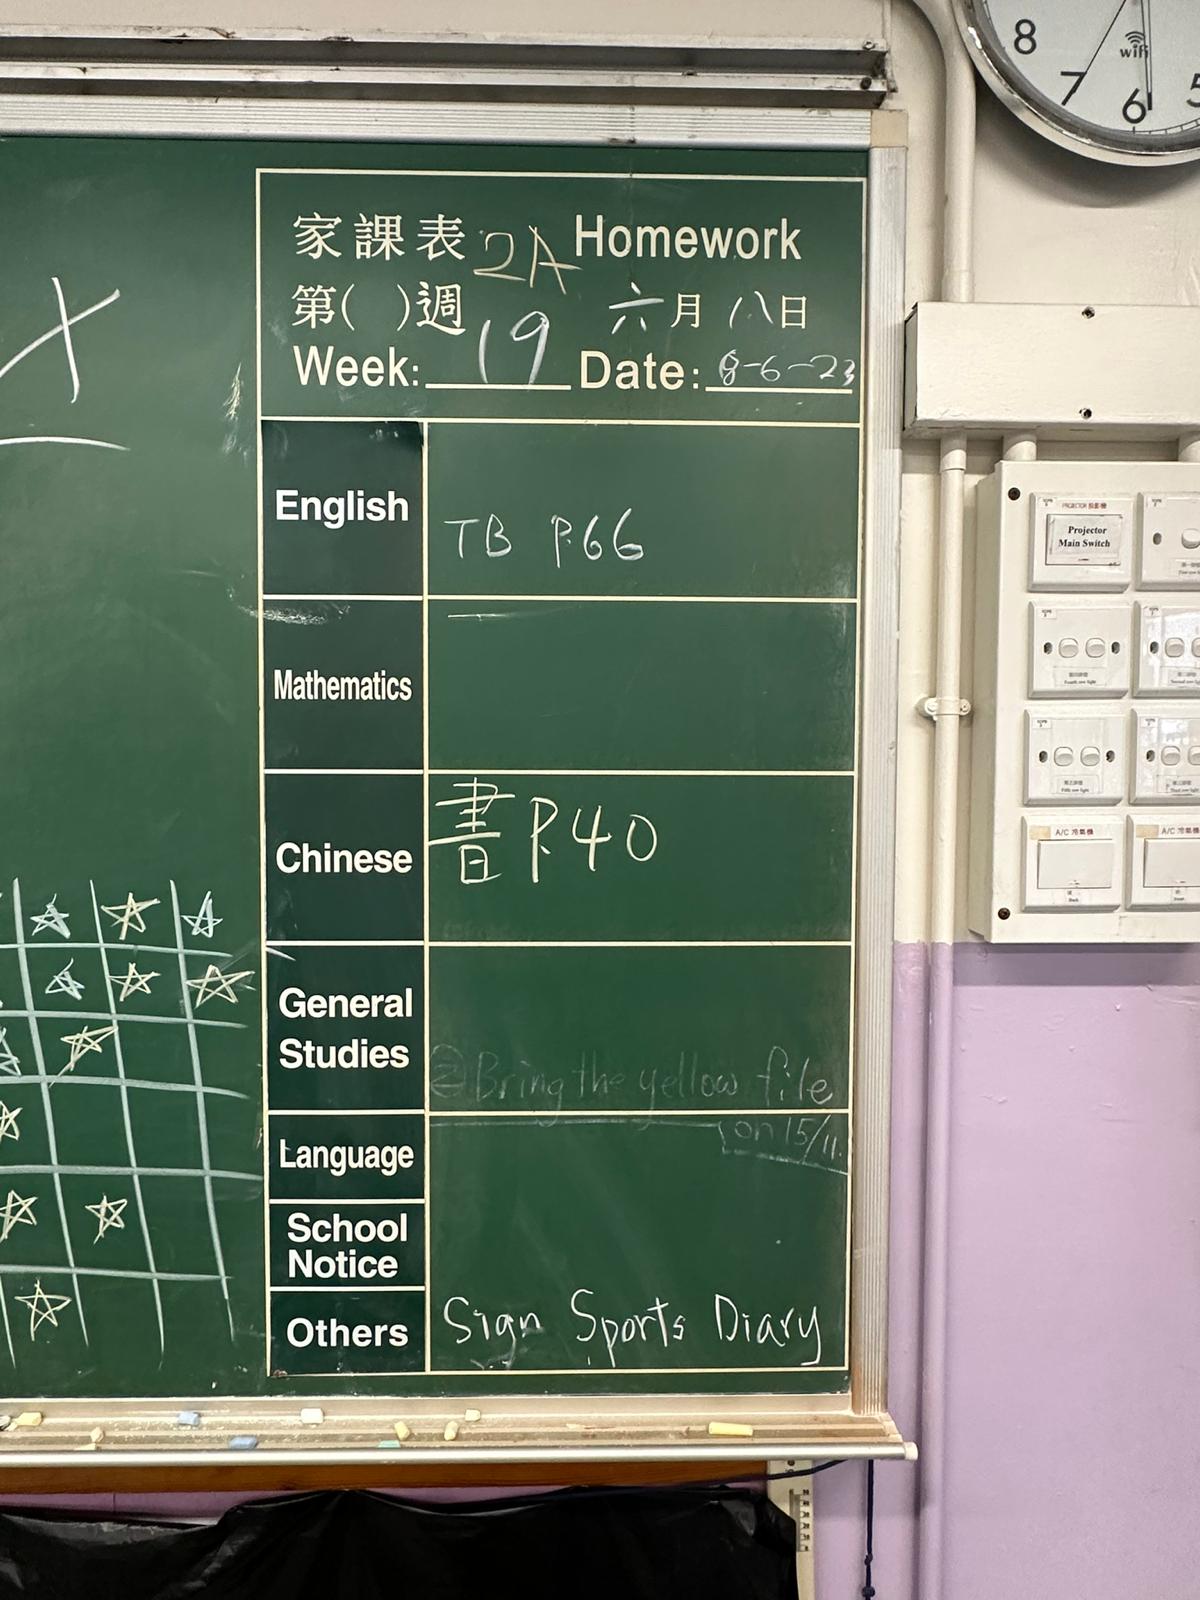 家課表 2A Homework
第( )週 六月八日
Week: 19 Date: 8-6-23
English TB P.66
Mathematics
Chinese 書 P.40
General
Studies
②Bring the yellow file
on 15/11.
Language
School
Notice
Others Sign Sports Diary
8
7
6
5
wifi
PROJECTOR 投影機
Projector
Main Switch
A/C 冷氣機
A/C 冷氣機